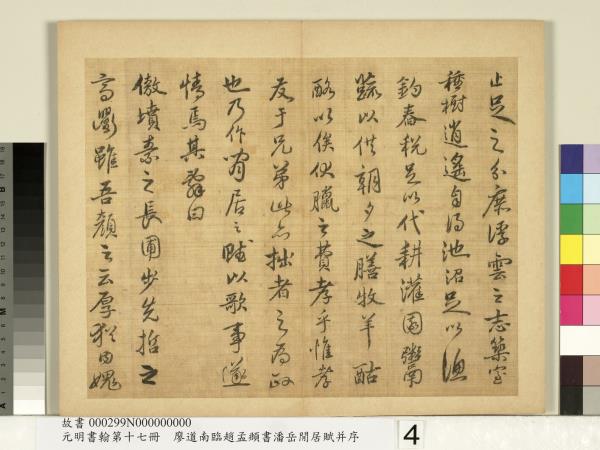 止足之分庶浮雲之志築室
種樹逍遙自得池沼足以漁
釣舂稅足以代耕灌園鬻
蔬以供朝夕之膳牧羊酤
酪以俟伏臘之費孝乎惟孝
友于兄弟此亦拙者之為政
也乃作閒居之賦以歌事遂
情焉其辭曰
傲墳素之長圃步先哲之
高衢雖吾顏之云厚猶內愧
故書 000299N000000000
元明書翰第十七冊 廖道南臨趙孟頫書潘岳閒居賦并序
4